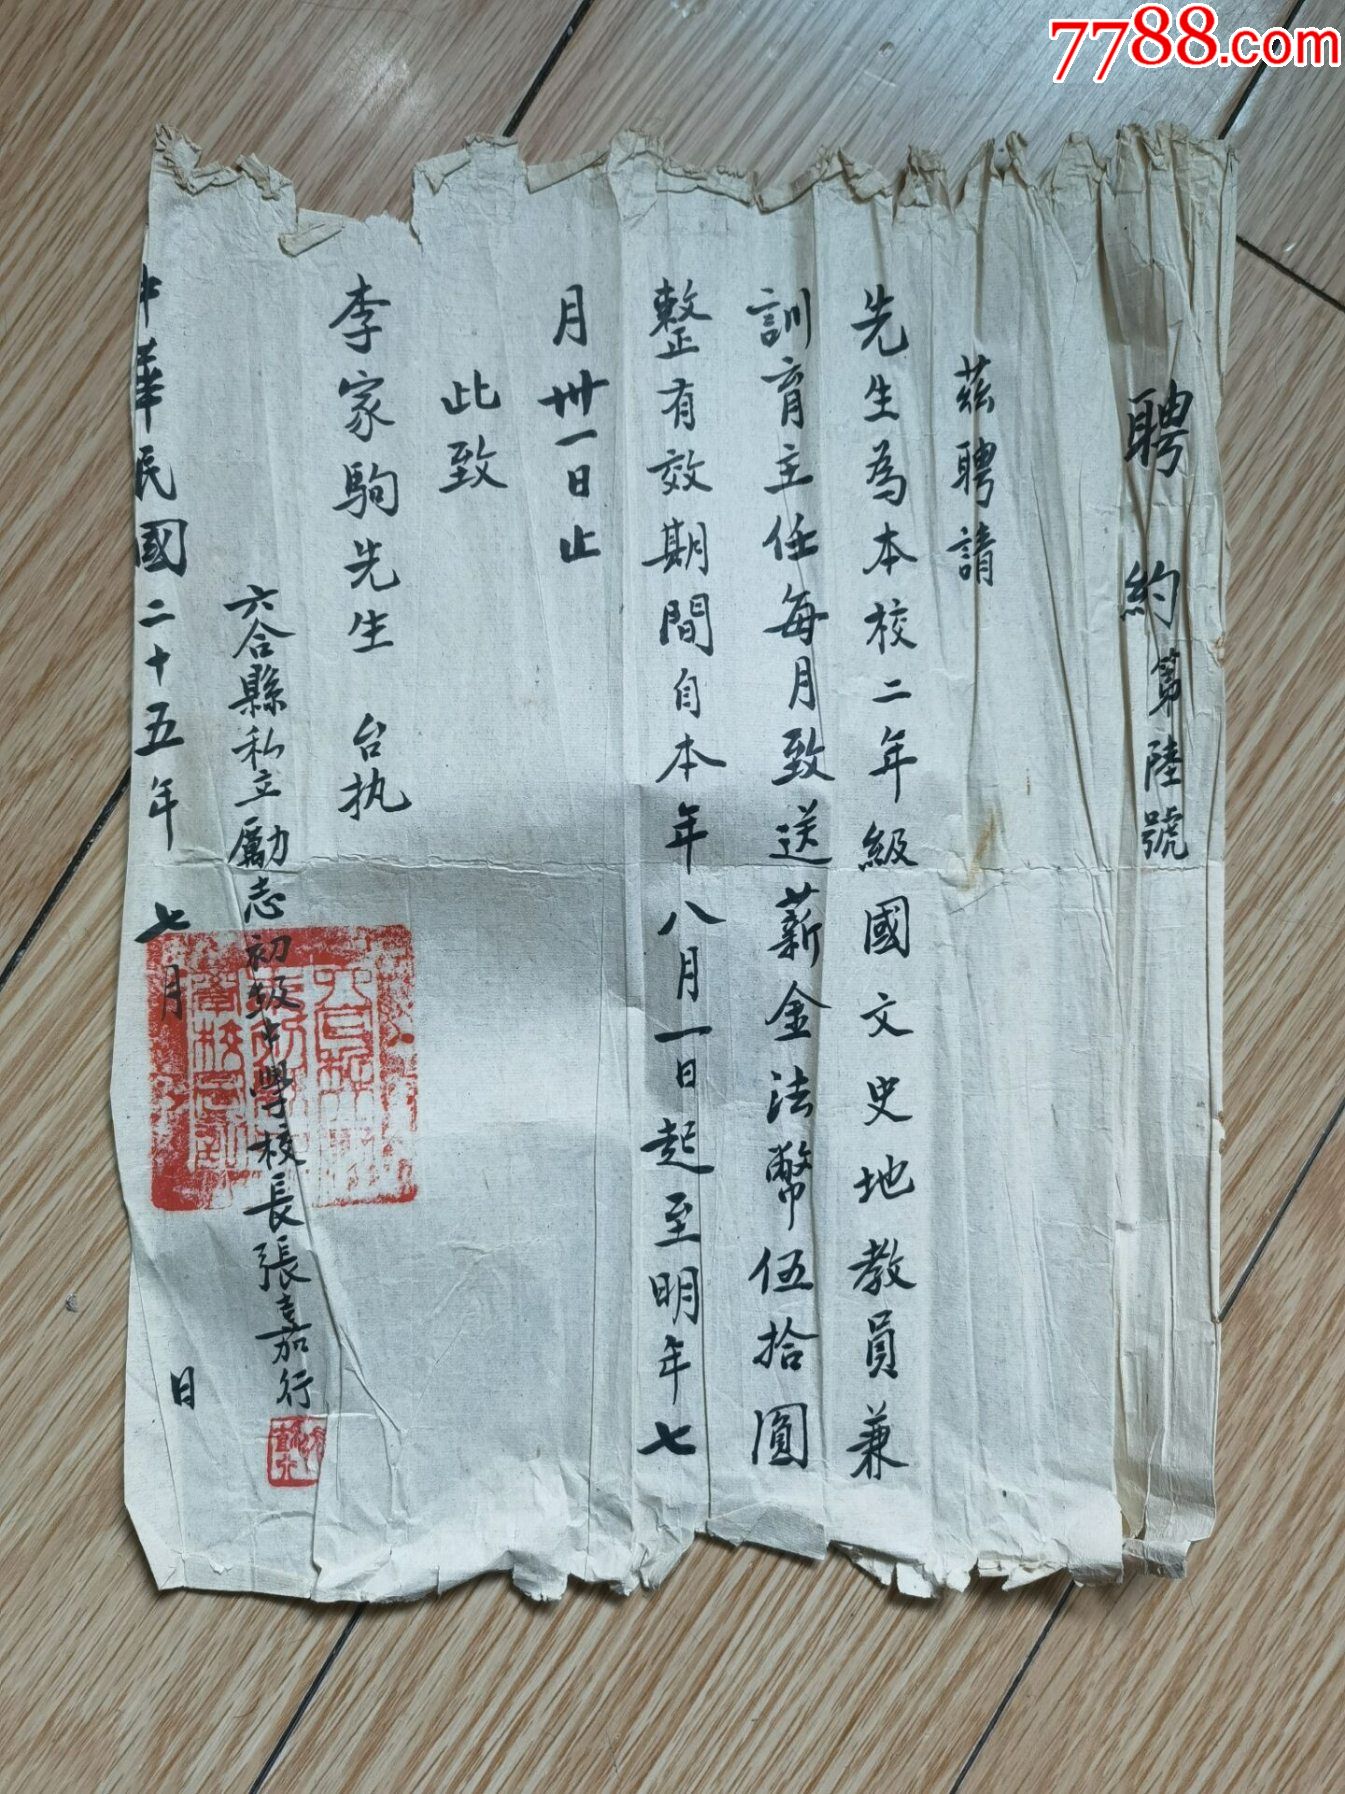 7788.com
聘約第陸號
茲聘請
先生為本校二年級國文史地教員兼
訓育主任每月致送薪金法幣伍拾圓
整有效期間自本年八月一日起至明年七
月卅一日止
此致
李家駒先生 台执
六合縣私立勵志初級中學校長張嘉行
中華民國二十五年七月 日